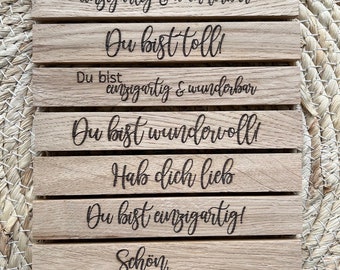 Du bist toll!
Du bist
einzigartig & wunderbar
Du bist wundervoll!
Hab dich lieb
Du bist einzigartig!
Schön,